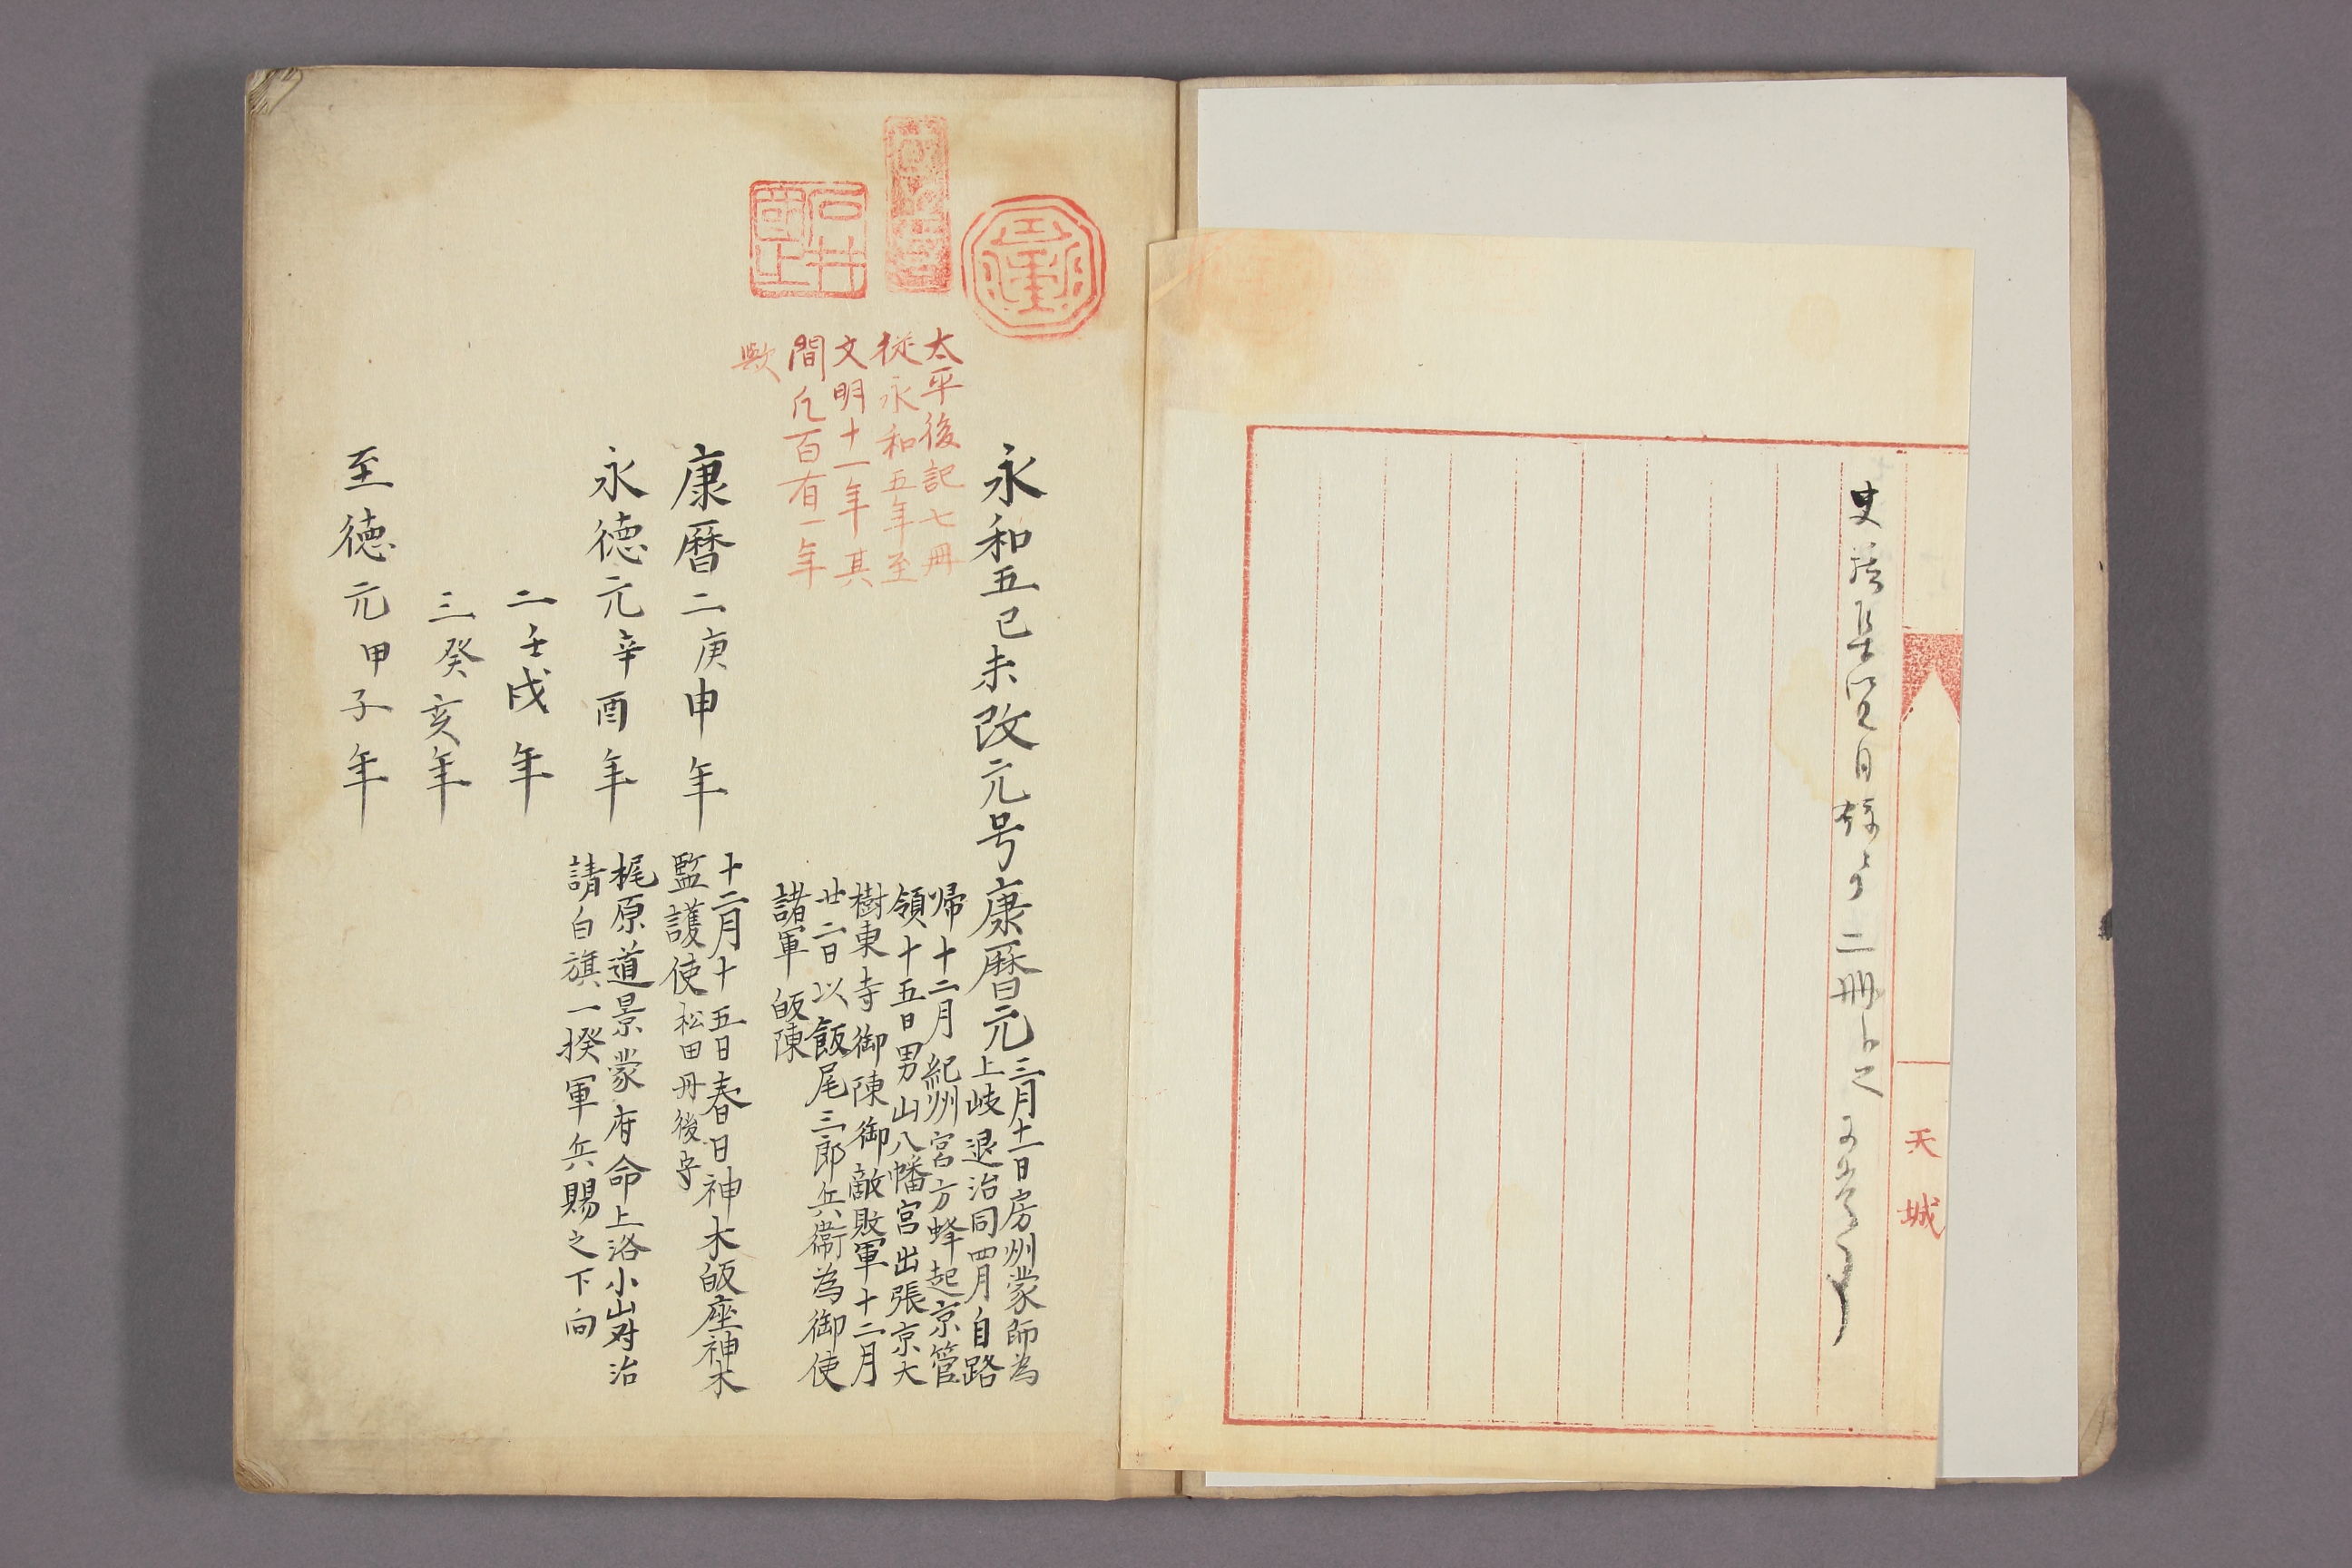 史籍集覧目録
二冊
天城
永和五己未改元号康暦元
三月十一日房州蒙師為
上岐退治同四月自路
帰十二月紀州宮方蜂起京管
領十五日男山八幡宮出張京大
樹東寺御陳御敵敗軍十二月
廿二日以飯尾三郎兵衛為御使
諸軍皈陳
太平後記七冊
従永和五年至
文明十一年其
間凡百有一年
歟
康暦二庚申年
十二月十五日春日神木皈座神木
監護使松田丹後守
永徳元辛酉年
梶原道景蒙府命上洛小山対治
請白旗一揆軍兵賜之下向
二壬戌年
三癸亥年
至徳元甲子年